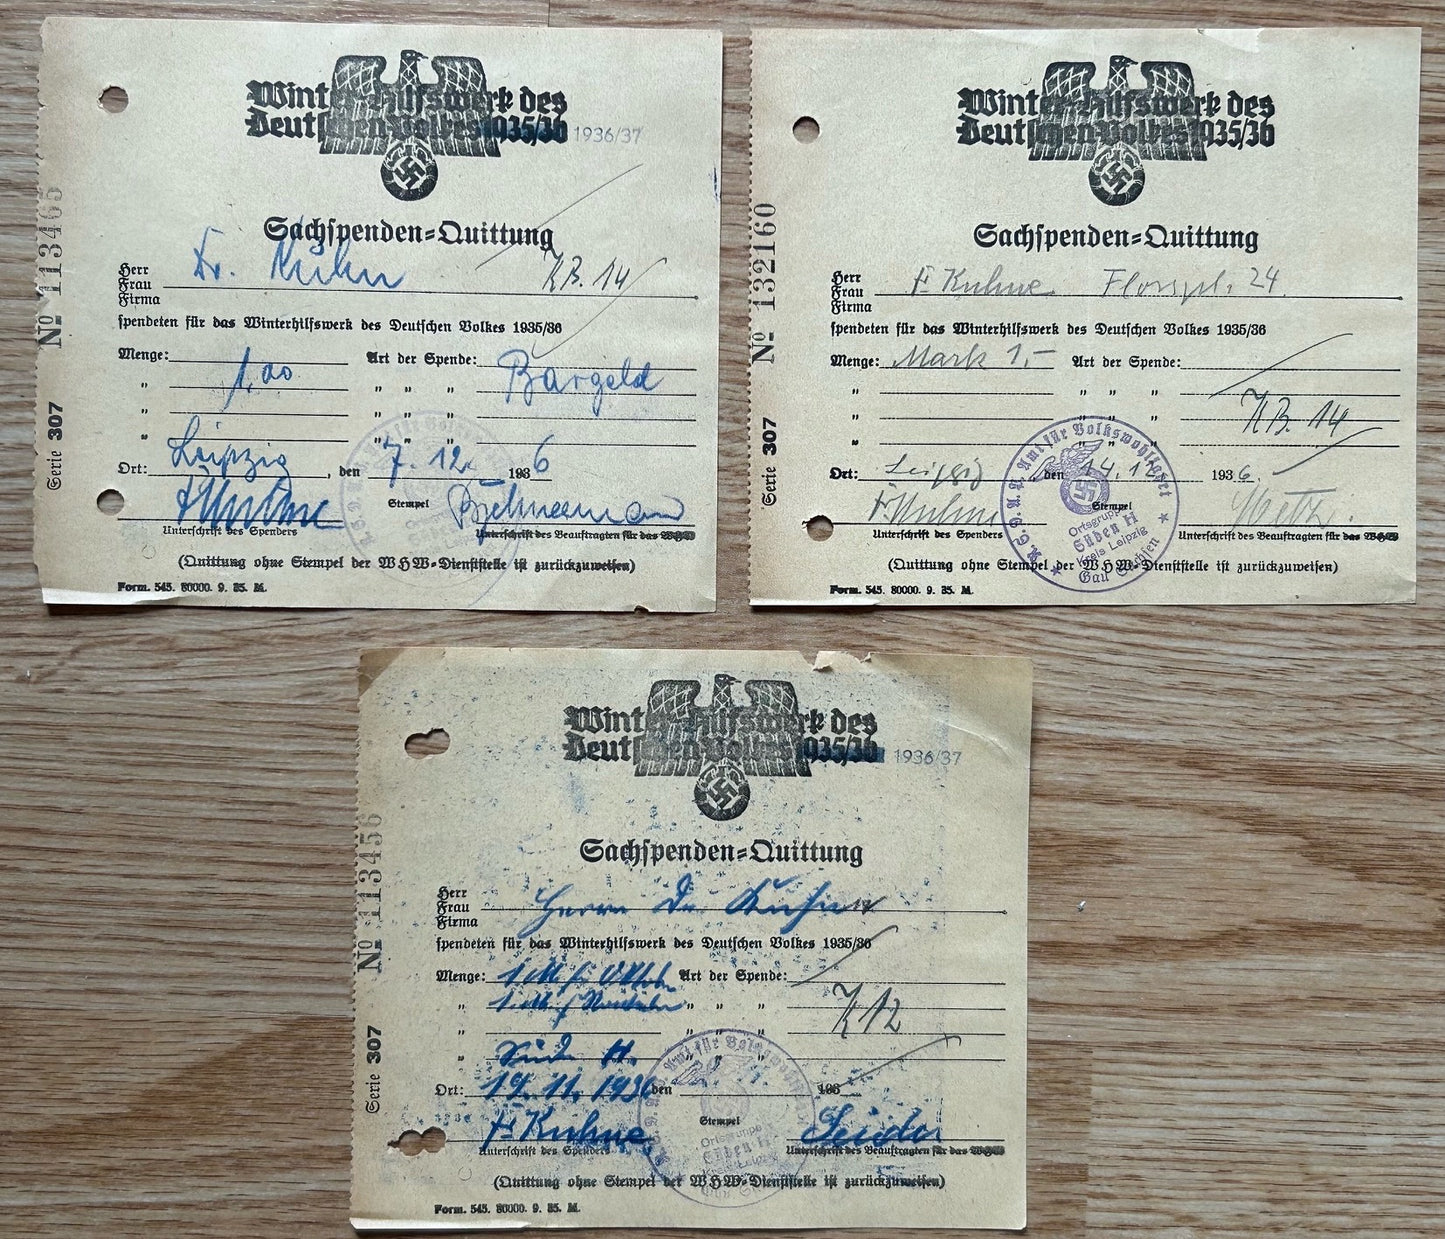 Winterhilfswerk des
Deutschen Volkes 1935/36 1936/37
Sachspenden=Quittung
Herr
Frau
Firma
Dr. Kühn
KB. 14
spendeten für das Winterhilfswerk des Deutschen Volkes 1935/36
Menge: Art der Spende:
" 1,00 " " " Bargeld
" " " "
" " " "
Ort: Leipzig, den 7. 12. 1936
Stempel
Unterschrift des Spenders Unterschrift des Beauftragten für das WHW
(Quittung ohne Stempel der WHW=Dienststelle ist zurückzuweisen)
Form. 545. 80000. 9. 35. M.
Serie 307 № 113465
Winterhilfswerk des
Deutschen Volkes 1935/36
Sachspenden=Quittung
Herr
Frau
Firma
F. Kuhne 24
spendeten für das Winterhilfswerk des Deutschen Volkes 1935/36
Menge: Mark 1,– Art der Spende:
" " " "
" " " " KB. 14
" " " "
Ort: Leipzig, den 14. 12. 1936.
F. Kuhne Stempel
Unterschrift des Spenders Unterschrift des Beauftragten für das WHW
N.S.D.A.P. Amt für Volkswohlfahrt
Ortsgruppe
Süden H
Kreis Leipzig
Gau Sachsen
(Quittung ohne Stempel der WHW=Dienststelle ist zurückzuweisen)
Form. 545. 80000. 9. 35. M.
Serie 307 № 132160
Winterhilfswerk des
Deutschen Volkes 1935/36 1936/37
Sachspenden=Quittung
Herr
Frau
Firma
Herrn Dr Kuhne
spendeten für das Winterhilfswerk des Deutschen Volkes 1935/36
Menge: 1. M. für Oktober Art der Spende:
" 1. M. f November " " "
" " " K 12
" Süden H. " "
Ort: 19. 11. 1936 den 193
F. Kuhne Stempel Seidel
Unterschrift des Spenders Unterschrift des Beauftragten für das WHW
Amt für Volkswohlfahrt
Ortsgruppe
Süden H
Kreis Leipzig
(Quittung ohne Stempel der WHW=Dienststelle ist zurückzuweisen)
Form. 545. 80000. 9. 35. M.
Serie 307 № 113456